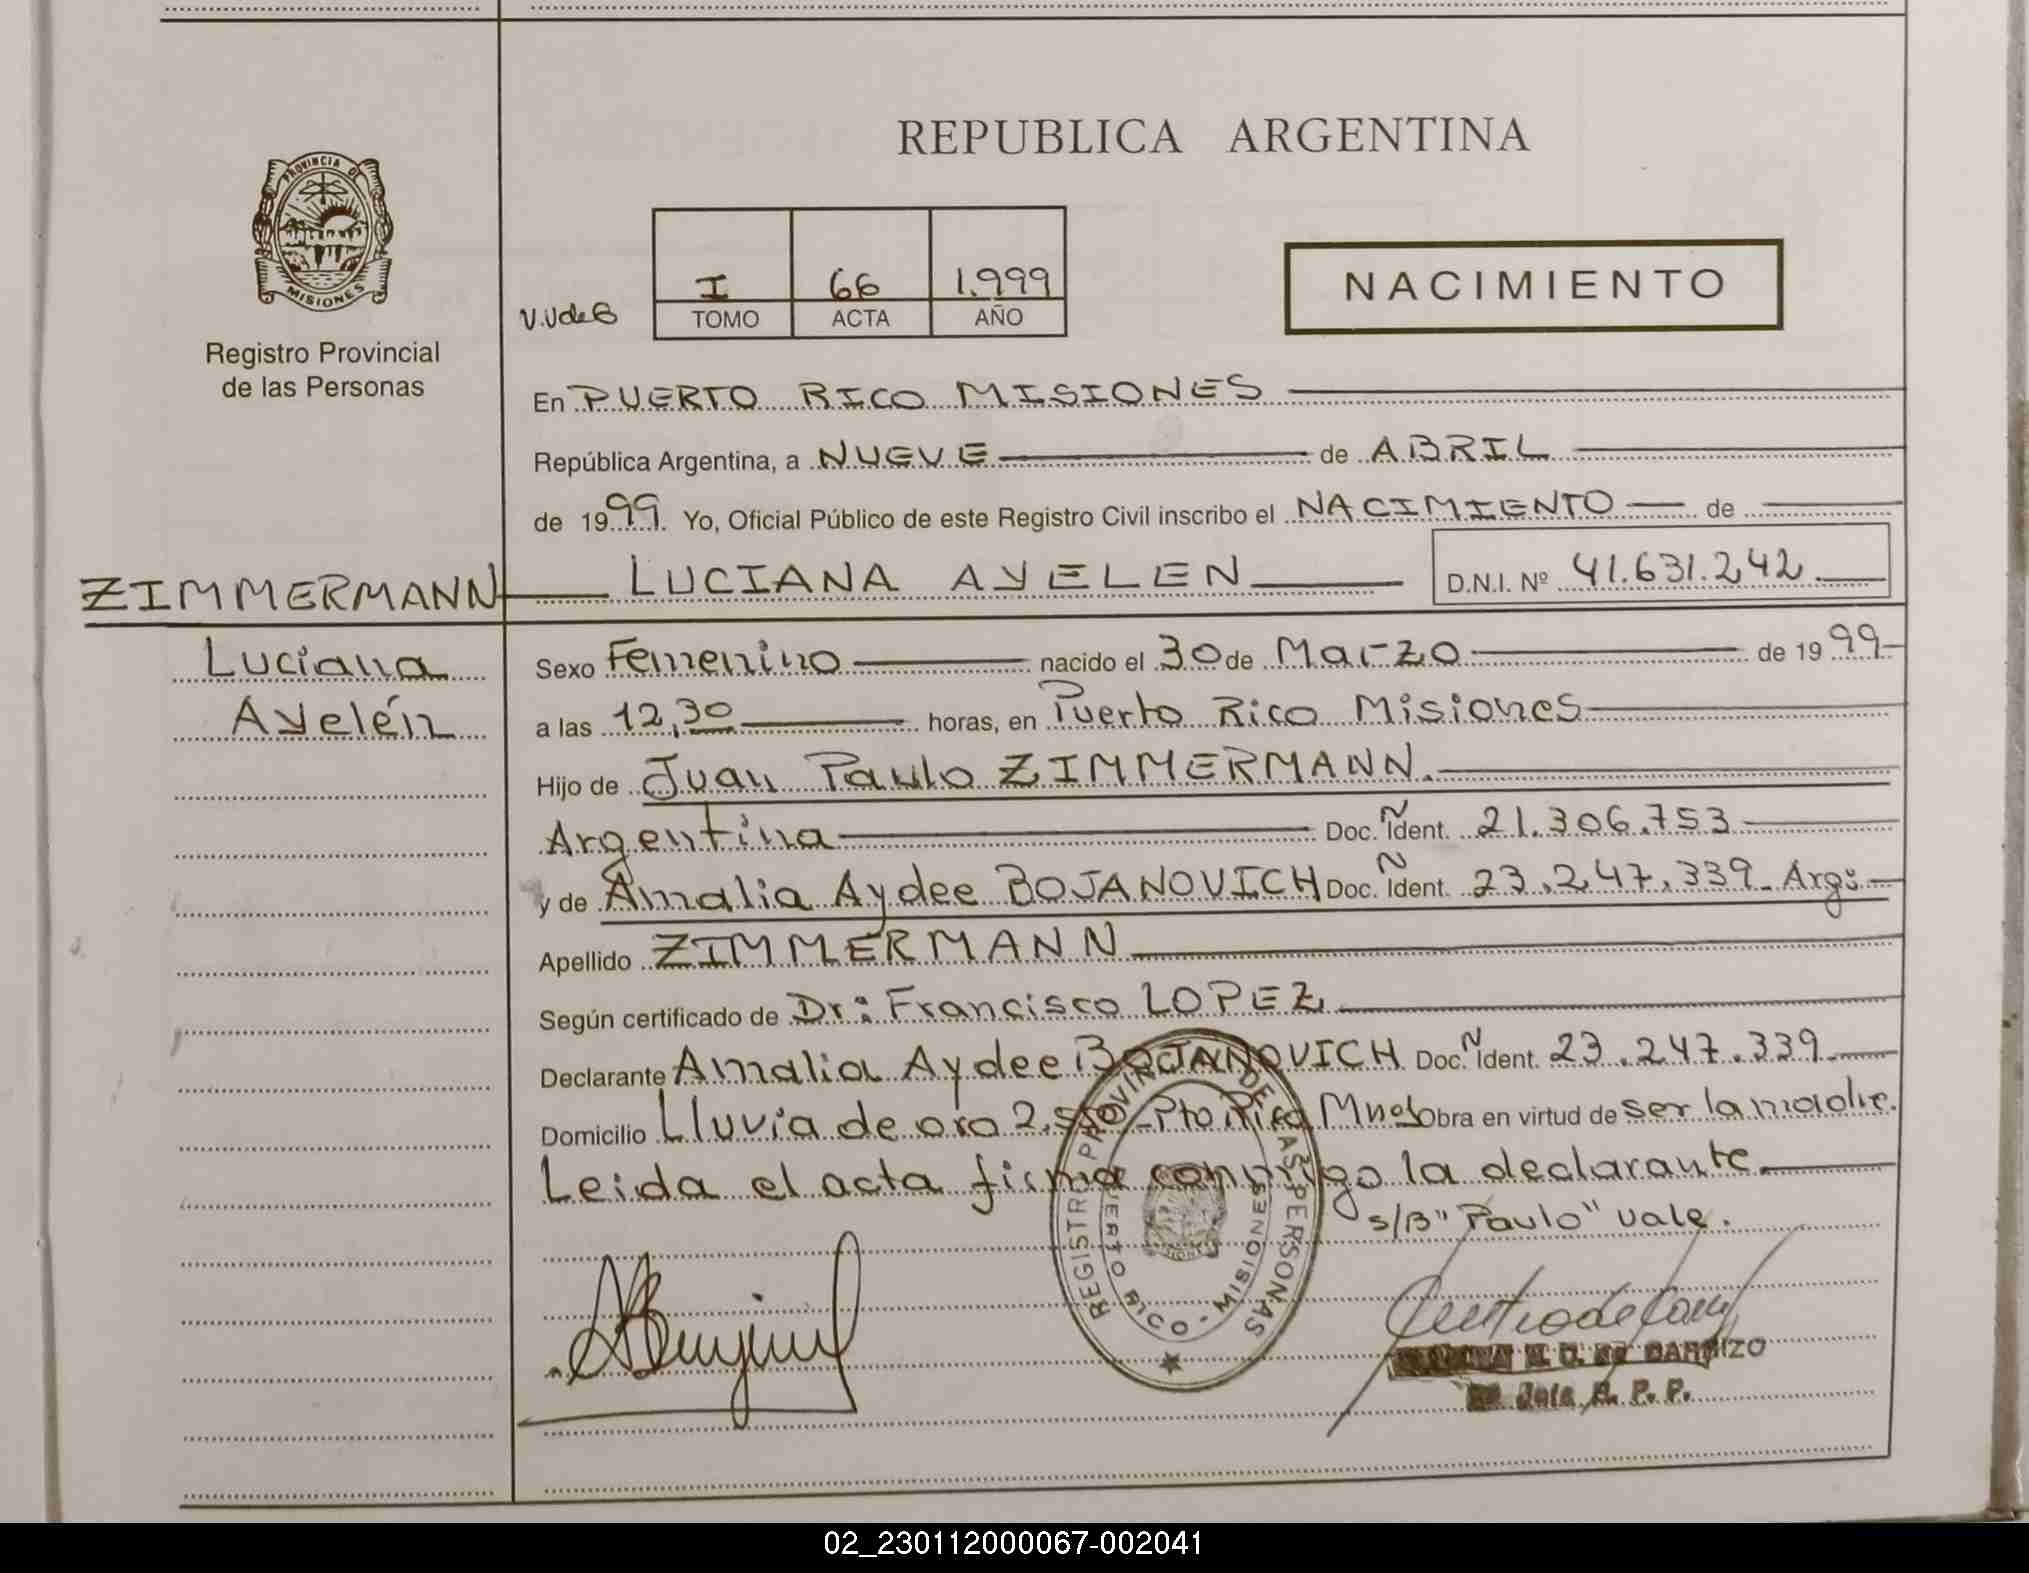 REPUBLICA ARGENTINA
PROVINCIA DE
MISIONES
Registro Provincial
de las Personas
I 66 1.999
V.V de G TOMO ACTA AÑO
NACIMIENTO
En PUERTO RICO MISIONES
República Argentina, a NUEVE de ABRIL
de 1999. Yo, Oficial Público de este Registro Civil inscribo el NACIMIENTO de
ZIMMERMANN LUCIANA AYELEN D.N.I. Nº 41.631.242
Luciana
Ayelén
Sexo Femenino nacido el 30 de Marzo de 1999
a las 12,30 horas, en Puerto Rico Misiones
Hijo de Juan Paulo ZIMMERMANN.
Argentina Doc. Ñ Ident. 21.306.753
y de Amalia Aydee BOJANOVICH Doc. Ñ Ident. 23.247.339. Arg:
Apellido ZIMMERMANN
Según certificado de Dr: Francisco LOPEZ
Declarante Amalia Aydee BOJANOVICH Doc. Ñ Ident. 23.247.339
Domicilio Lluvia de oro 2.550-Pto Rico Mnes Obra en virtud de ser la madre.
Leida el acta firma conmigo la declarante.
s/B "Paulo" vale.
REGISTRO PROVINCIAL DE LAS PERSONAS
PUERTO RICO - MISIONES
DE CARRIZO
Jefa R. P. P.
02_230112000067-002041